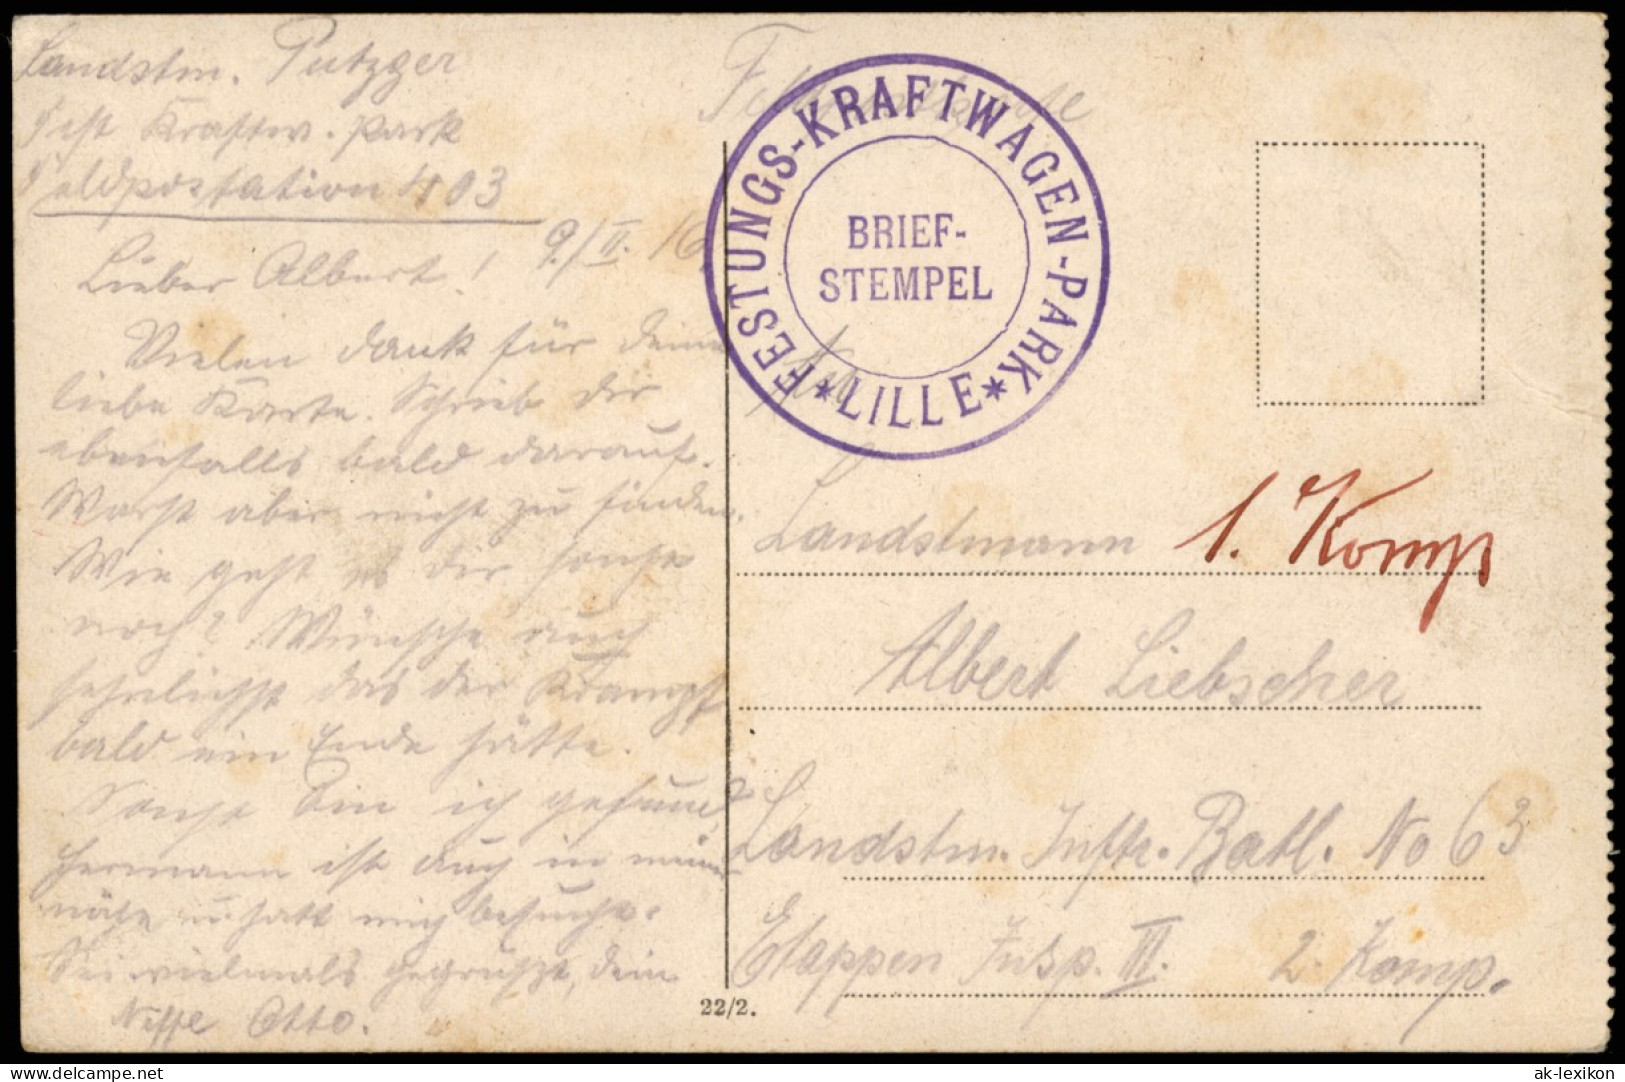 Landstm. Putzger
Fest Kraftw. Park
Feldpostation 403
9./II. 16.
Lieber Albert!
Vielen dank für deine
liebe Karte. Schrieb dir
ebenfalls bald darauf.
Warst aber nicht zu finden.
Wie geht es dir sonst
noch? Wünsche auch
sehnlichst das der Krampf
bald ein Ende hätte.
Sonst bin ich gesund,
Hermann ist auch in meiner
nähe u. hatt mich besucht.
Sei vielmals gegrüßt, dein
Neffe Otto.
Feldpostkarte
FESTUNGS-KRAFTWAGEN-PARK
* LILLE *
BRIEF-
STEMPEL
An
Landstmann 1. Komp
Albert Liebscher
Landstm. Inftr. Batl. No 63
Etappen Insp. III. 2. Komp.
22/2.
www.delcampe.net
ak-lexikon